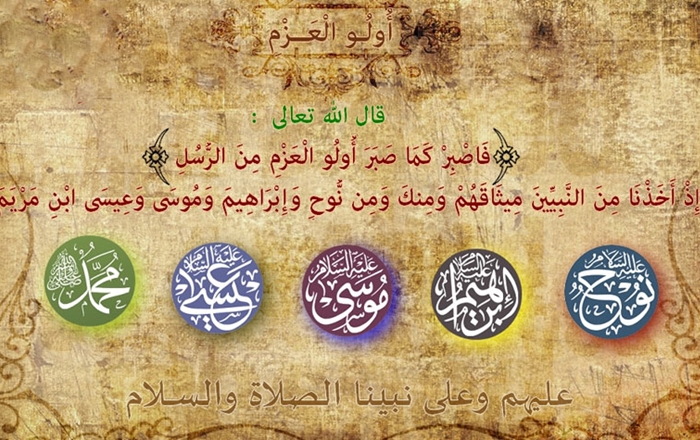 أُولُو الْعَزْم
قال الله تعالى :
﴿فَاصْبِرْ كَمَا صَبَرَ أُولُو الْعَزْمِ مِنَ الرُّسُلِ﴾
إِذْ أَخَذْنَا مِنَ النَّبِيِّينَ مِيثَاقَهُمْ وَمِنكَ وَمِن نُّوحٍ وَإِبْرَاهِيمَ وَمُوسَى وَعِيسَى ابْنِ مَرْيَمَ
نوح عليه السلام
إبراهيم عليه السلام
موسى عليه السلام
عيسى عليه السلام
محمد صلى الله عليه وسلم
عليهم وعلى نبينا الصلاة والسلام